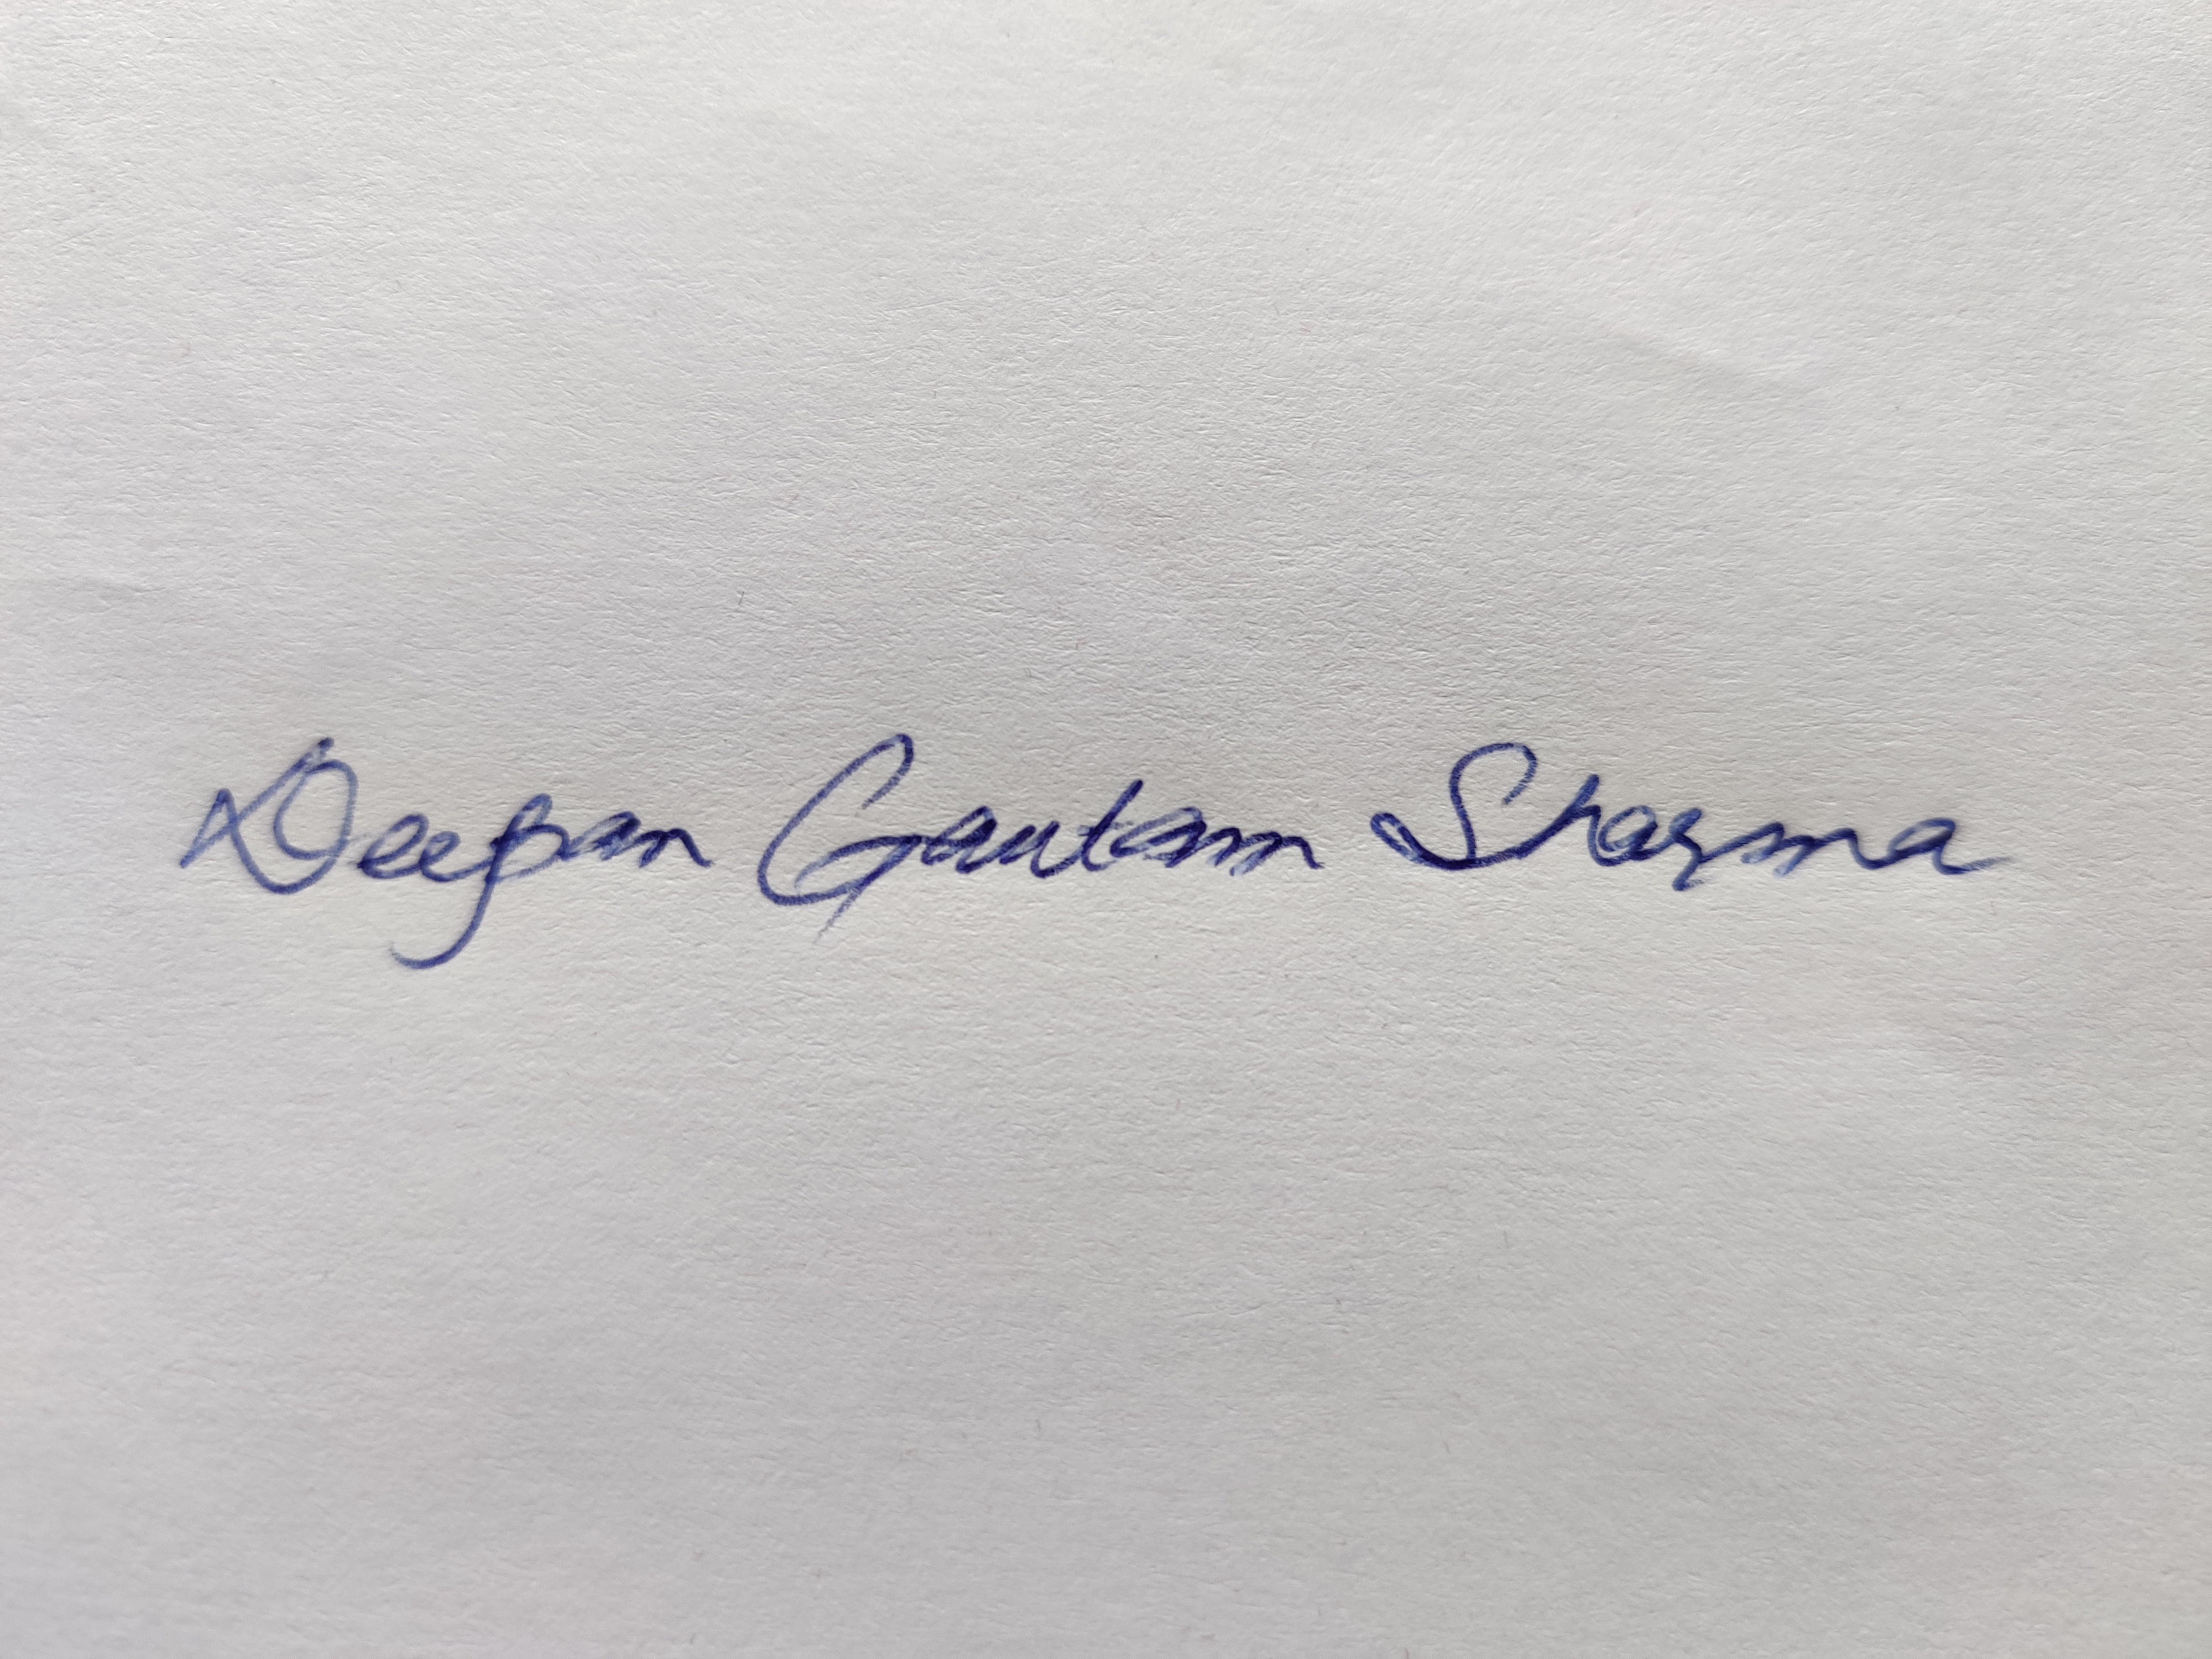 Deepan Gautam Sharma